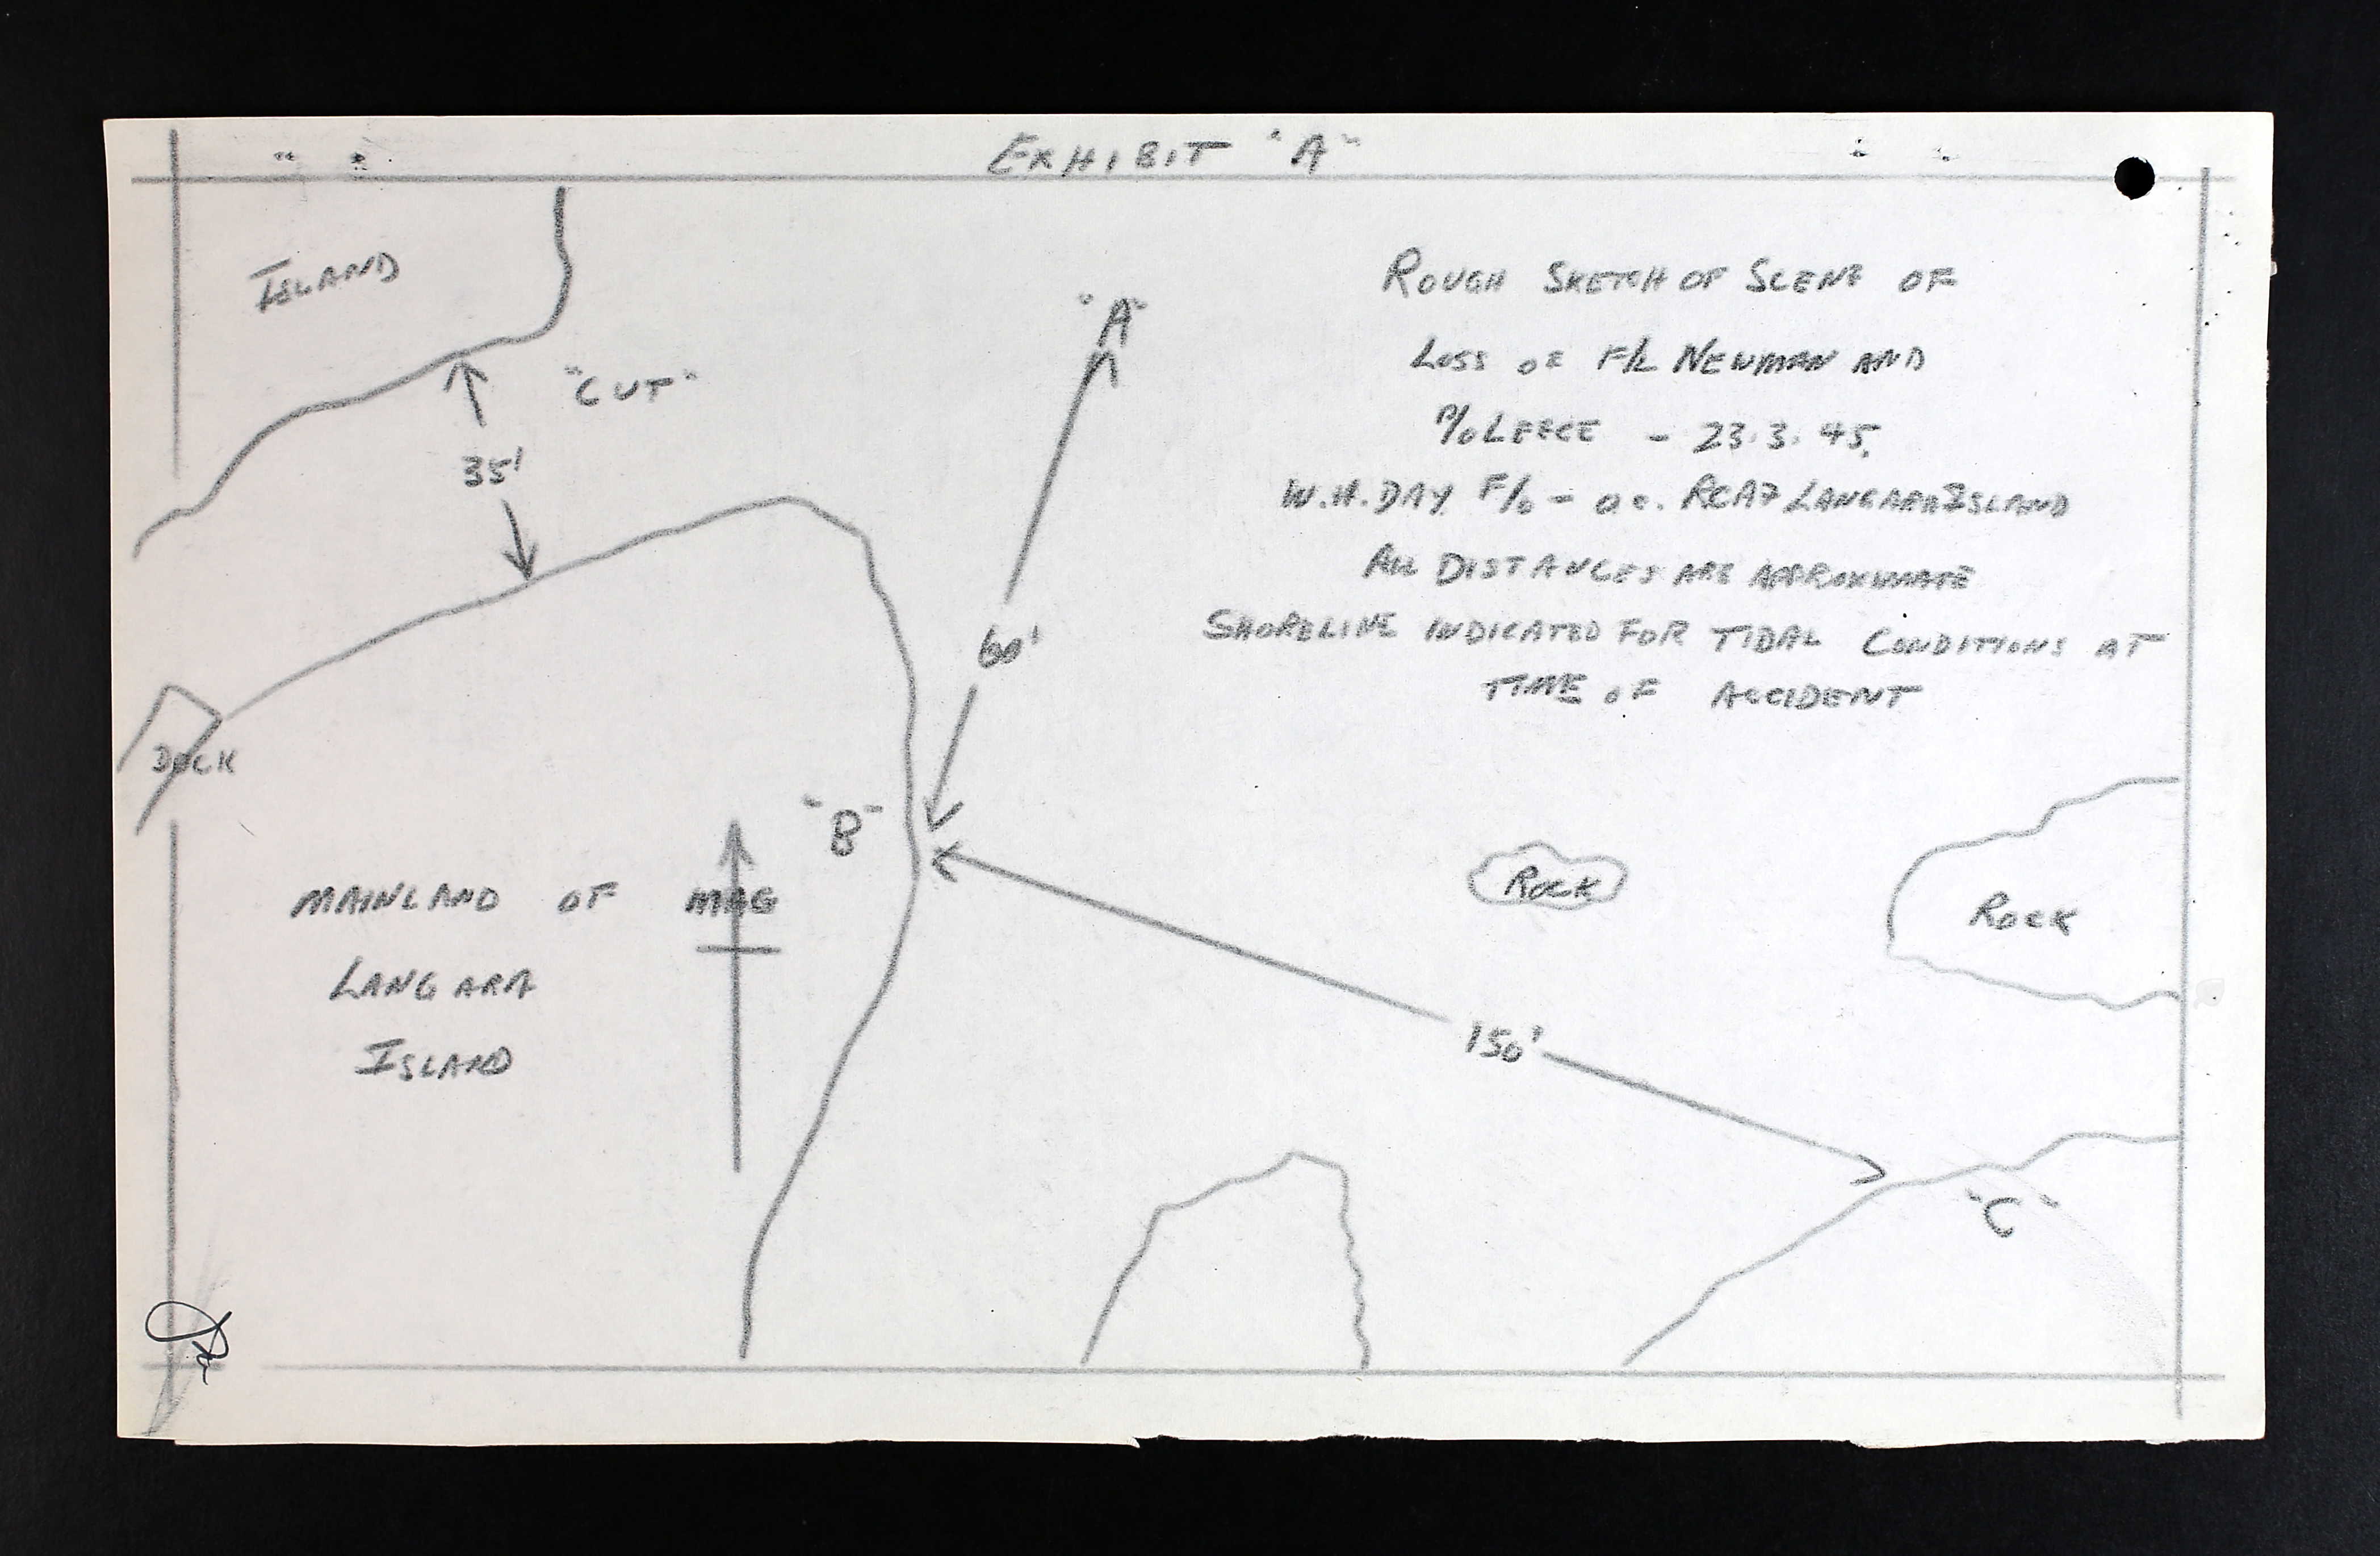 EXHIBIT "A"
ISLAND
"CUT"
35'
"A"
60'
ROUGH SKETCH OF SCENE OF
LOSS OF F/L NEWMAN AND
P/O LEECE - 23.3.45.
W.H. DAY F/O - O.C. RCAF LANGARA ISLAND
ALL DISTANCES ARE APPROXIMATE
SHORELINE INDICATED FOR TIDAL CONDITIONS AT
TIME OF ACCIDENT
DOCK
"B"
MAG
MAINLAND OF
LANGARA
ISLAND
ROCK
ROCK
150'
"C"